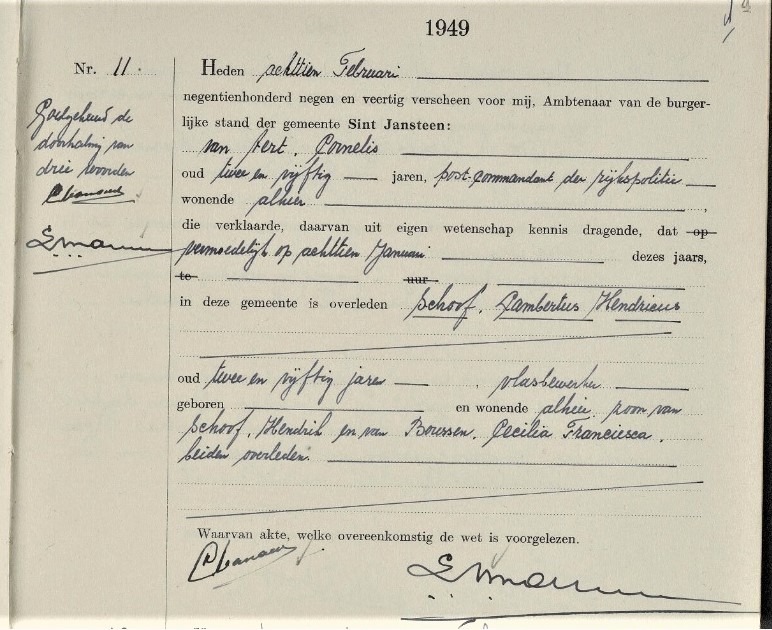 1949
Nr. 11.
Heden achttien Februari
negentienhonderd negen en veertig verscheen voor mij, Ambtenaar van de burger-
lijke stand der gemeente Sint Jansteen:
van Aert, Cornelis
oud twee en vijftig jaren, post-commandant der rijkspolitie
wonende alhier,
die verklaarde, daarvan uit eigen wetenschap kennis dragende, dat op
vermoedelijk op achttien Januari dezes jaars,
te uur
in deze gemeente is overleden Schoof, Lambertus Hendricus
oud twee en vijftig jaren, vlasbewerker
geboren en wonende alhier, zoon van
Schoof, Hendrik en van Boussen, Cecilia Francisca,
beiden overleden.
Waarvan akte, welke overeenkomstig de wet is voorgelezen.
Goedgekeurd de
doorhaling van
drie woorden